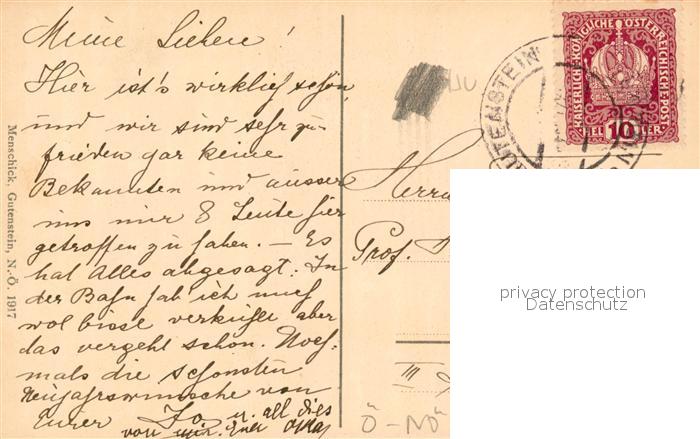 Meine Lieben!
Hier ist's wirklich schön,
und wir sind sehr zu-
frieden gar keine
Bekannten und ausser
uns nur 8 Leute hier
getroffen zu haben. — Es
hat Alles abgesagt. In
der Bahn hab ich mich
wol bisse verkühlt aber
das vergeht schon. Noch-
mals die schönsten
Neujahrswünsche von
Eurer
u. all dies
von mir. Euer
Menschick, Gutenstein, N.-Ö. 1917
GUTENSTEIN
KAISERLICH KÖNIGLICHE ÖSTERREICHISCHE POST
HELLER
10
Herrn
Prof.
III
Ö - NÖ
privacy protection
Datenschutz